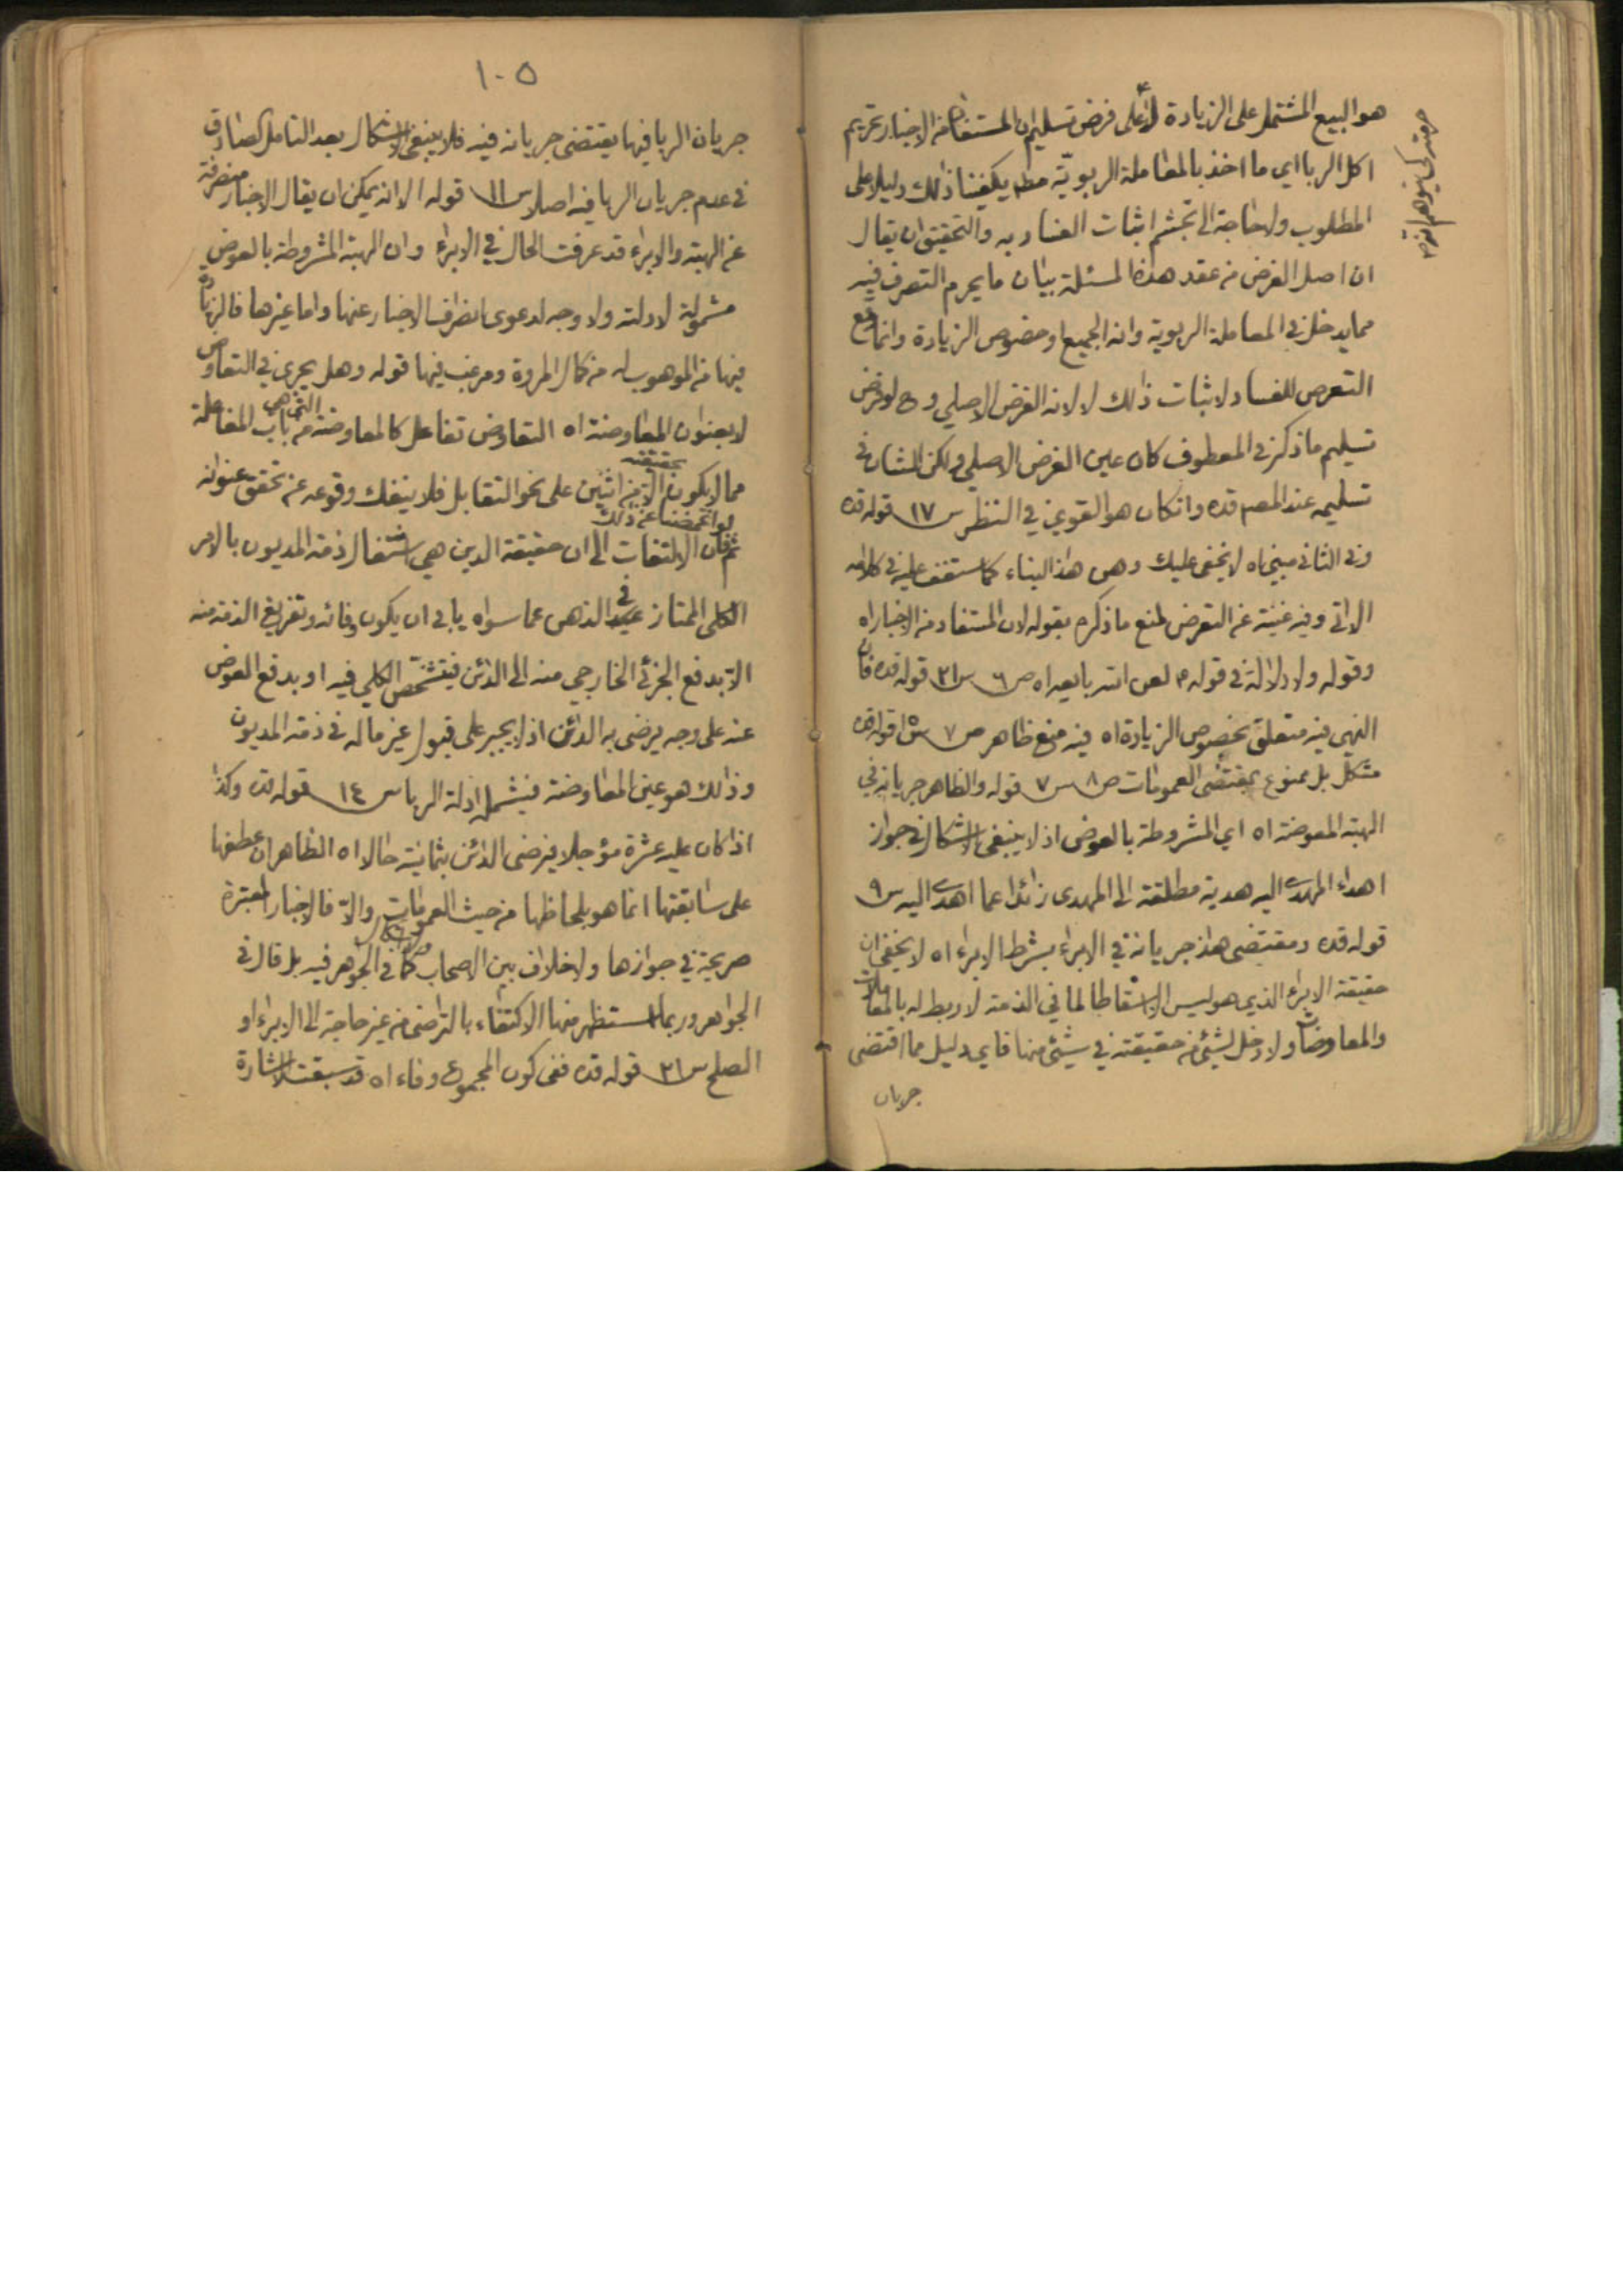 هو البيع المشتمل على الزيادة لا على فرض تسليم ان المستفاد من الاخبار تحريم
اكل الربا اي ما اخذ بالمعاملة الربويّة مطم يكفينا ذلك دليلا على
المطلوب ولا حاجة الى تجشم اثبات الفساد به والتحقيق ان يقال
ان اصل الغرض من عقد هذه المسئلة بيان ما يحرم التصرف فيه
مما يدخل في المعاملة الربوية وانه الجميع او خصوص الزيادة وانما وقع
التعرض للفساد لاثبات ذلك لا لانه الغرض الاصلي وح لو فرض
تسليم ما ذكر في المعطوف كان عين الغرض الاصلي ولكن الشان في
تسليمه عند المصم قده وانكان هو القوي في النظر س ١٧ قوله قده
وفي الثاني مبني اه لا يخفى عليك وهن هذا البناء كما ستقف عليه في كلامه
الاتي وفيه غنية عن التعرض لمنع ما ذكره بقوله لان المستفاد من الاخبار اه
وقوله ولا دلالة في قوله م لعن الله بايعه اه ص ٦ س ٢١ قوله قده فان
النهي فيه متعلق بخصوص الزيادة اه فيه منع ظاهر ص ٧ س ١٥ قوله قده
مشكل بل ممنوع بمقتضى العمومات ص ٨ س ٧ قوله والظاهر جريانه في
الهبة المعوضة اه اي المشروطة بالعوض اذ لا ينبغي الاشكال في جواز
اهداء المهدى اليه هدية مطلقة الى المهدي زائدا عما اهدى اليه س ٩
قوله قده ومقتضى هذا جريانه في الابراء بشرط الابراء اه لا يخفى ان
حقيقة الابراء الذي هو ليس الا اسقاطا لما في الذمة لا ربط له بالمعاملات
والمعاوضات ولا دخل لشيء من حقيقته في شيء منها فاي دليل مما اقتضى
جريان
١٠٥
جريان الربا فيها يقتضي جريانه فيه فلا ينبغي الاشكال بعد التامل الصادق
في عدم جريان الربا فيه اصلا س ١١ قوله الا انه يمكن ان يقال الاخبار منصرفة
عن الهبة والابراء قد عرفت الحال في الابراء وان الهبة المشروطة بالعوض
مشمولة لادلته ولا وجه لدعوى انصراف الاخبار عنها واما غيرها فالزيادة
فيها من الموهوب له من كمال المروة ومرغب فيها قوله وهل يجري في التعاوض
لا بعنوان المعاوضة اه التعاوض تفاعل كالمعاوضة التي هي من باب المفاعلة
مما لا يكون بحقيقته الا من اثنين على نحو التقابل فلا ينفك وقوعه عن تحقق عنوانه
ثم لو اغمضنا عن ذلك فان الالتفات الى ان حقيقة الدين هي اشتغال ذمة المديون بالامر
الكلي الممتاز في الذهن عما سواه يابى ان يكون وفائه وتفريغ الذمة منه
الا بدفع الجزئي الخارجي منه الى الدائن فيتشخص الكلي فيه او بدفع العوض
عنه على وجه يرضى به الدائن اذ لا يجبر على قبول غير ماله في ذمة المديون
وذلك هو عين المعاوضة فيشمل ادلة الربا س ١٤ قوله قده وكذا
اذا كان عليه عشرة مؤجلا فيرضى الدائن بثمانية حالا اه الظاهر ان عطفها
على سابقتها انما هو بلحاظها من حيث العمومات والا فالاخبار المعتبرة
صريحة في جوازها ولا خلاف بين الاصحاب كما في الجواهر فيه بل قال في
الجواهر وربما استظهر منها الاكتفاء بالتراضي من غير حاجة الى الابراء او
الصلح س ٢١ قوله قده ففي كون المجموع وفاء اه قد سبقت الاشارة